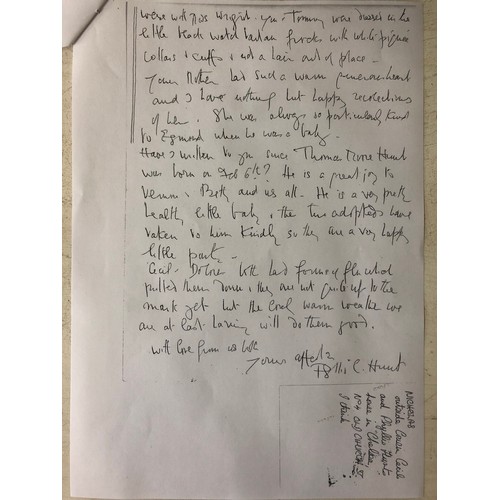 were with Miss Wright. you & Tommy were dressed in the
little black watch tartan frocks with white piqué
collars & cuffs & not a hair out of place -
Your Mother had such a warm generous heart
and I have nothing but happy recollections
of her. She was always so particularly kind
to Egmond when he was a baby -
Have I written to you since Thomas Hunt
was born on Feb 6th? He is a great joy to
Betty and us all. He is a very pretty
healthy little baby, & the two adopteds have
taken to him kindly so they are a very happy
little party -
Cecil & both had forms of flu which
pulled them down & they are not quite up to the
mark yet but the warm weather we
are at last having will do them good.
with love from us both
Yours affect.
Hunt
NICHOLAS
outside Cousin Cecil
and Phyllis Hunt's
house in Chelsea,
No 4 OLD CHURCH ST
I think